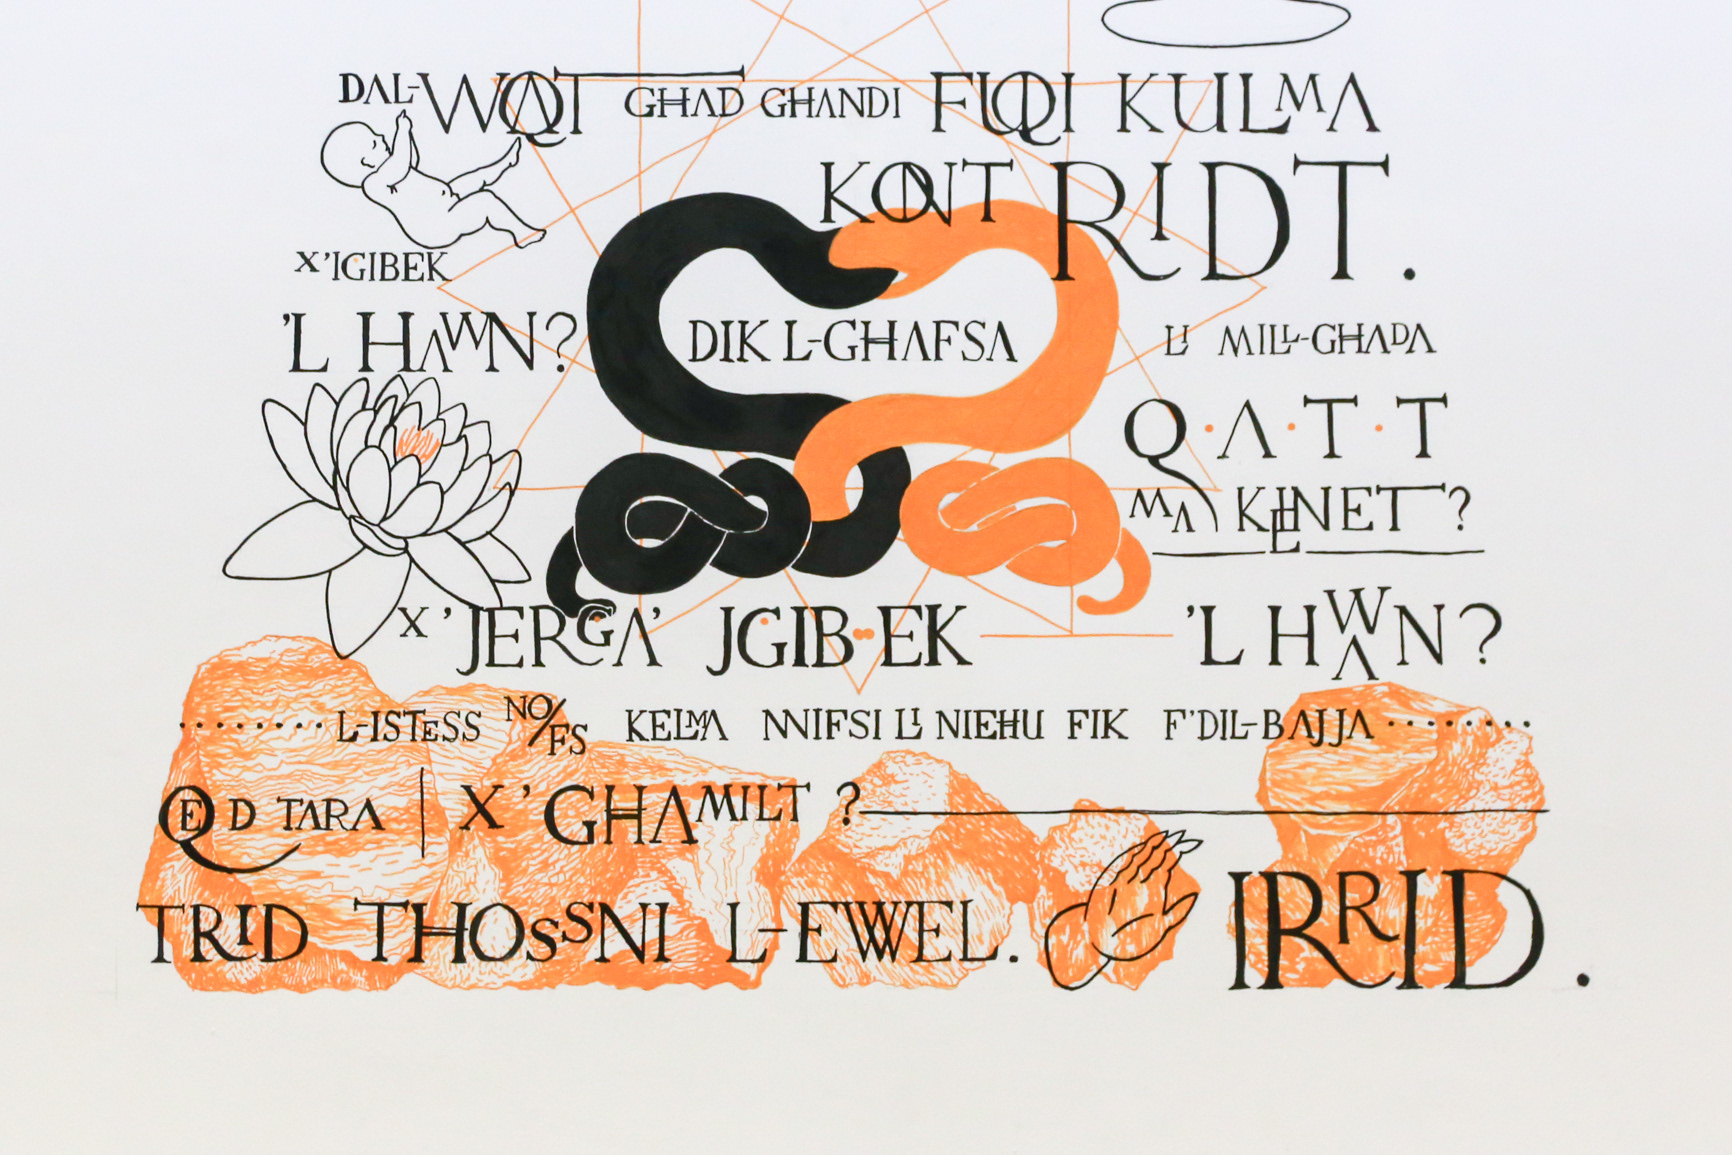 DAL-WAQT GĦAD GĦANDI FUQI KULMA
KONT RIDT.
X'IĠIBEK
'L HAWN? DIK L-GĦAFSA LI MILL-GĦADA
QATT
MA KIENET?
X'JERĠA' JĠIBEK 'L HAWN?
........L-ISTESS NOFS KELMA NNIFSI LI NIEĦU FIK F'DIL-BAJJA........
QED TARA | X'GĦAMILT?
TRID TĦOSSNI L-EWEL. IRRID.